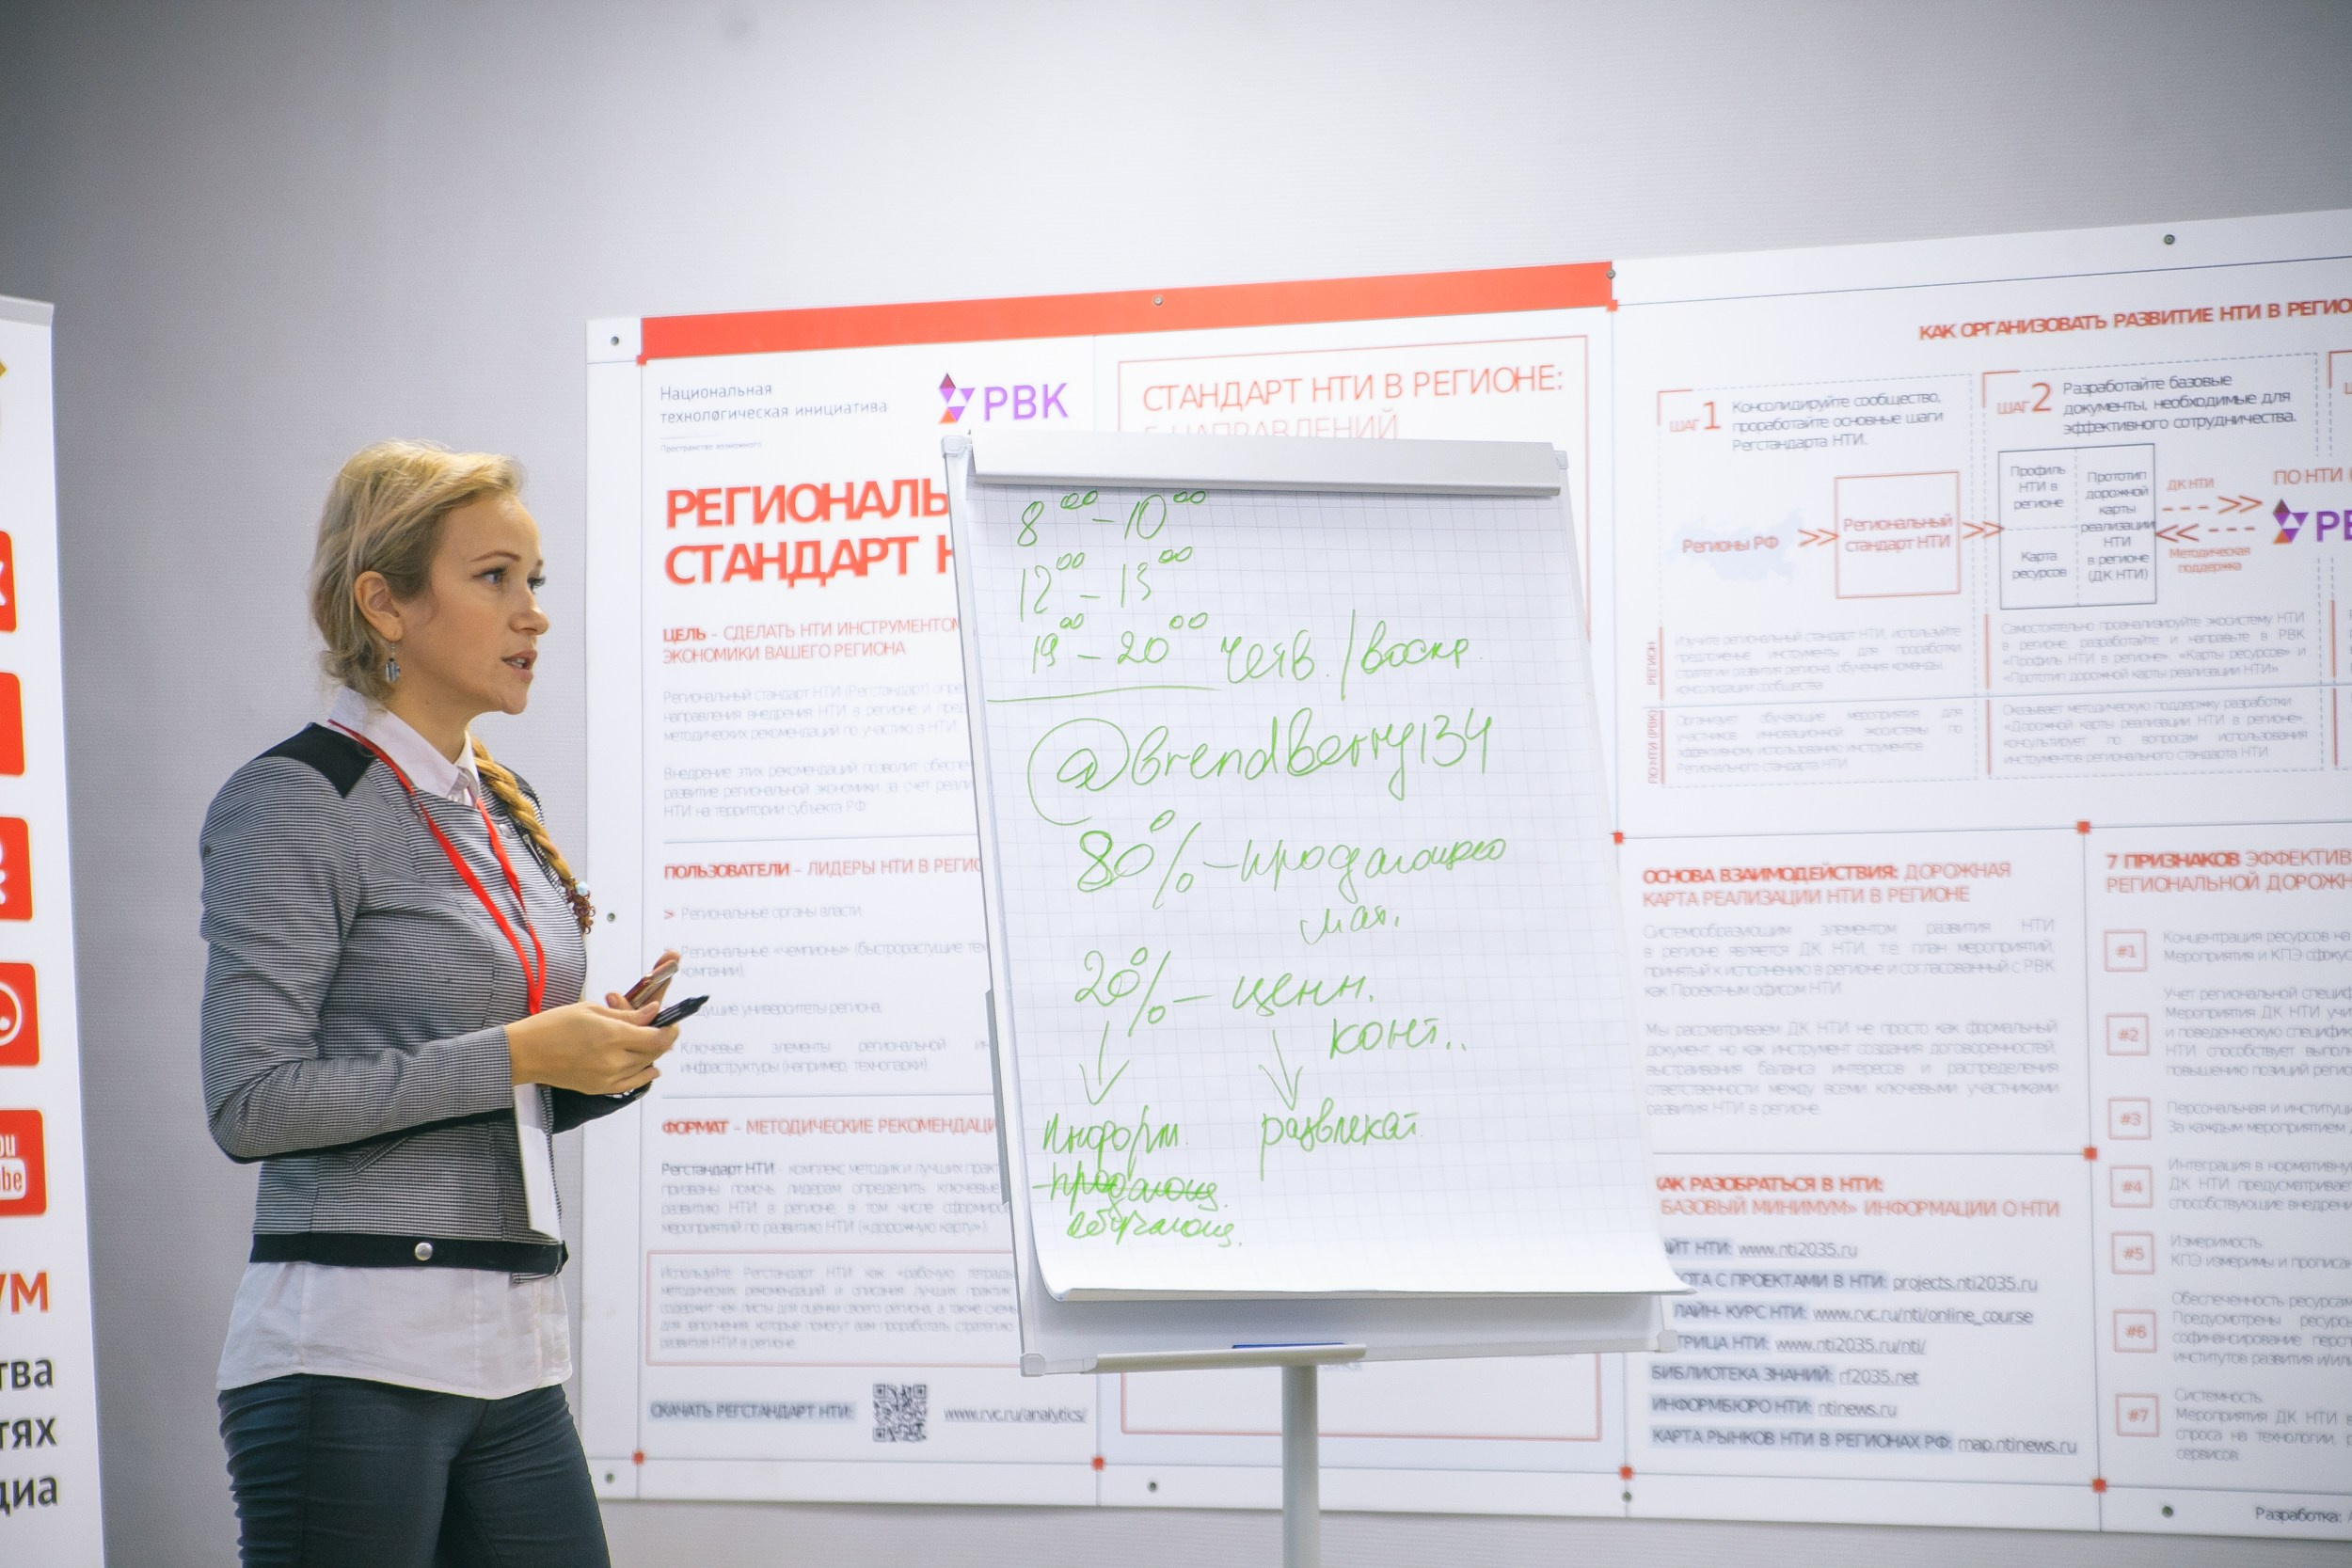 You
Tube
УМ
тва
тях
диа
Национальная
технологическая инициатива
Пространство возможного
РВК
РЕГИОНАЛЬ
СТАНДАРТ Н
ЦЕЛЬ – СДЕЛАТЬ НТИ ИНСТРУМЕНТОМ
ЭКОНОМИКИ ВАШЕГО РЕГИОНА
Региональный стандарт НТИ (Регстандарт) опре
направления внедрения НТИ в регионе и пред
методических рекомендаций по участию в НТИ.
Внедрение этих рекомендаций позволит обеспе
развитие региональной экономики за счет реали
НТИ на территории субъекта РФ
ПОЛЬЗОВАТЕЛИ – ЛИДЕРЫ НТИ В РЕГИО
> Региональные органы власти;
Региональные «чемпионы» (быстрорастущие тех
компании);
дущие университеты региона;
Ключевые элементы региональной ин
инфраструктуры (например, технопарки)
ФОРМАТ – МЕТОДИЧЕСКИЕ РЕКОМЕНДАЦИ
Регстандарт НТИ - комплекс методик и лучших практ
призваны помочь лидерам определить ключевые
развитию НТИ в регионе, в том числе сформиров
мероприятий по развитию НТИ («дорожную карту»).
Используйте Регстандарт НТИ как «рабочую тетрадь
методических рекомендаций и описания лучших практик
содержит чек-листы для оценки своего региона, а также схемы
для заполнения, которые помогут вам проработать стратегию
развития НТИ в регионе
СКАЧАТЬ РЕГСТАНДАРТ НТИ:
www.rvc.ru/analytics/
СТАНДАРТ НТИ В РЕГИОНЕ:
5 НАПРАВЛЕНИЙ
8 00 – 10 00
12 00 – 13 00
19 00 – 20 00 четв. / воскр.
@brendberry134
80% – продающего
мат.
20% – ценн.
конт..
Информ. развлекат.
-продающ.
обучающ.
КАК ОРГАНИЗОВАТЬ РАЗВИТИЕ НТИ В РЕГИО
ШАГ 1
Консолидируйте сообщество,
проработайте основные шаги
Регстандарта НТИ.
Регионы РФ
Региональный
стандарт НТИ
ШАГ 2
Разработайте базовые
документы, необходимые для
эффективного сотрудничества.
Профиль
НТИ в
регионе
Прототип
дорожной
карты
реализации
НТИ
в регионе
(ДК НТИ)
Карта
ресурсов
ДК НТИ
Методическая
поддержка
ПО НТИ
РВ
РЕГИОН
Изучите региональный стандарт НТИ, используйте
предложенные инструменты для проработки
стратегии развития региона, обучения команды,
консолидации сообщества.
Самостоятельно проанализируйте экосистему НТИ
в регионе, разработайте и направьте в РВК
«Профиль НТИ в регионе», «Карты ресурсов» и
«Прототип дорожной карты реализации НТИ»
ПО НТИ (РВК)
Организует обучающие мероприятия для
участников инновационной экосистемы по
эффективному использованию инструментов
Регионального стандарта НТИ.
Оказывает методическую поддержку разработки
«Дорожной карты реализации НТИ в регионе»,
консультирует по вопросам использования
инструментов регионального стандарта НТИ
ОСНОВА ВЗАИМОДЕЙСТВИЯ: ДОРОЖНАЯ
КАРТА РЕАЛИЗАЦИИ НТИ В РЕГИОНЕ
Системообразующим элементом развития НТИ
в регионе является ДК НТИ, т.е. план мероприятий,
принятый к исполнению в регионе и согласованный с РВК
как Проектным офисом НТИ.
Мы рассматриваем ДК НТИ не просто как формальный
документ, но как инструмент создания договоренностей,
выстраивания баланса интересов и распределения
ответственности между всеми ключевыми участниками
развития НТИ в регионе.
КАК РАЗОБРАТЬСЯ В НТИ:
БАЗОВЫЙ МИНИМУМ» ИНФОРМАЦИИ О НТИ
АЙТ НТИ: www.nti2035.ru
ОТА С ПРОЕКТАМИ В НТИ: projects.nti2035.ru
ЛАЙН- КУРС НТИ: www.rvc.ru/nti/online_course
ТРИЦА НТИ: www.nti2035.ru/nti/
БИБЛИОТЕКА ЗНАНИЙ: rf2035.net
ИНФОРМБЮРО НТИ: ntinews.ru
КАРТА РЫНКОВ НТИ В РЕГИОНАХ РФ: map.ntinews.ru
7 ПРИЗНАКОВ ЭФФЕКТИВ
РЕГИОНАЛЬНОЙ ДОРОЖН
#1
Концентрация ресурсов на
Мероприятия и КПЭ сфокус
#2
Учет региональной специф
Мероприятия ДК НТИ учи
и поведенческую специфи
НТИ способствует выполн
повышению позиций регио
#3
Персональная и институци
За каждым мероприятием Д
#4
Интеграция в нормативную
ДК НТИ предусматривает
способствующие внедрени
#5
Измеримость.
КПЭ измеримы и прописан
#6
Обеспеченность ресурсам
Предусмотрены ресурс
софинансирование перс
институтов развития и/или
#7
Системность.
Мероприятия ДК НТИ в
спроса на технологии, р
сервисов.
Разработка: